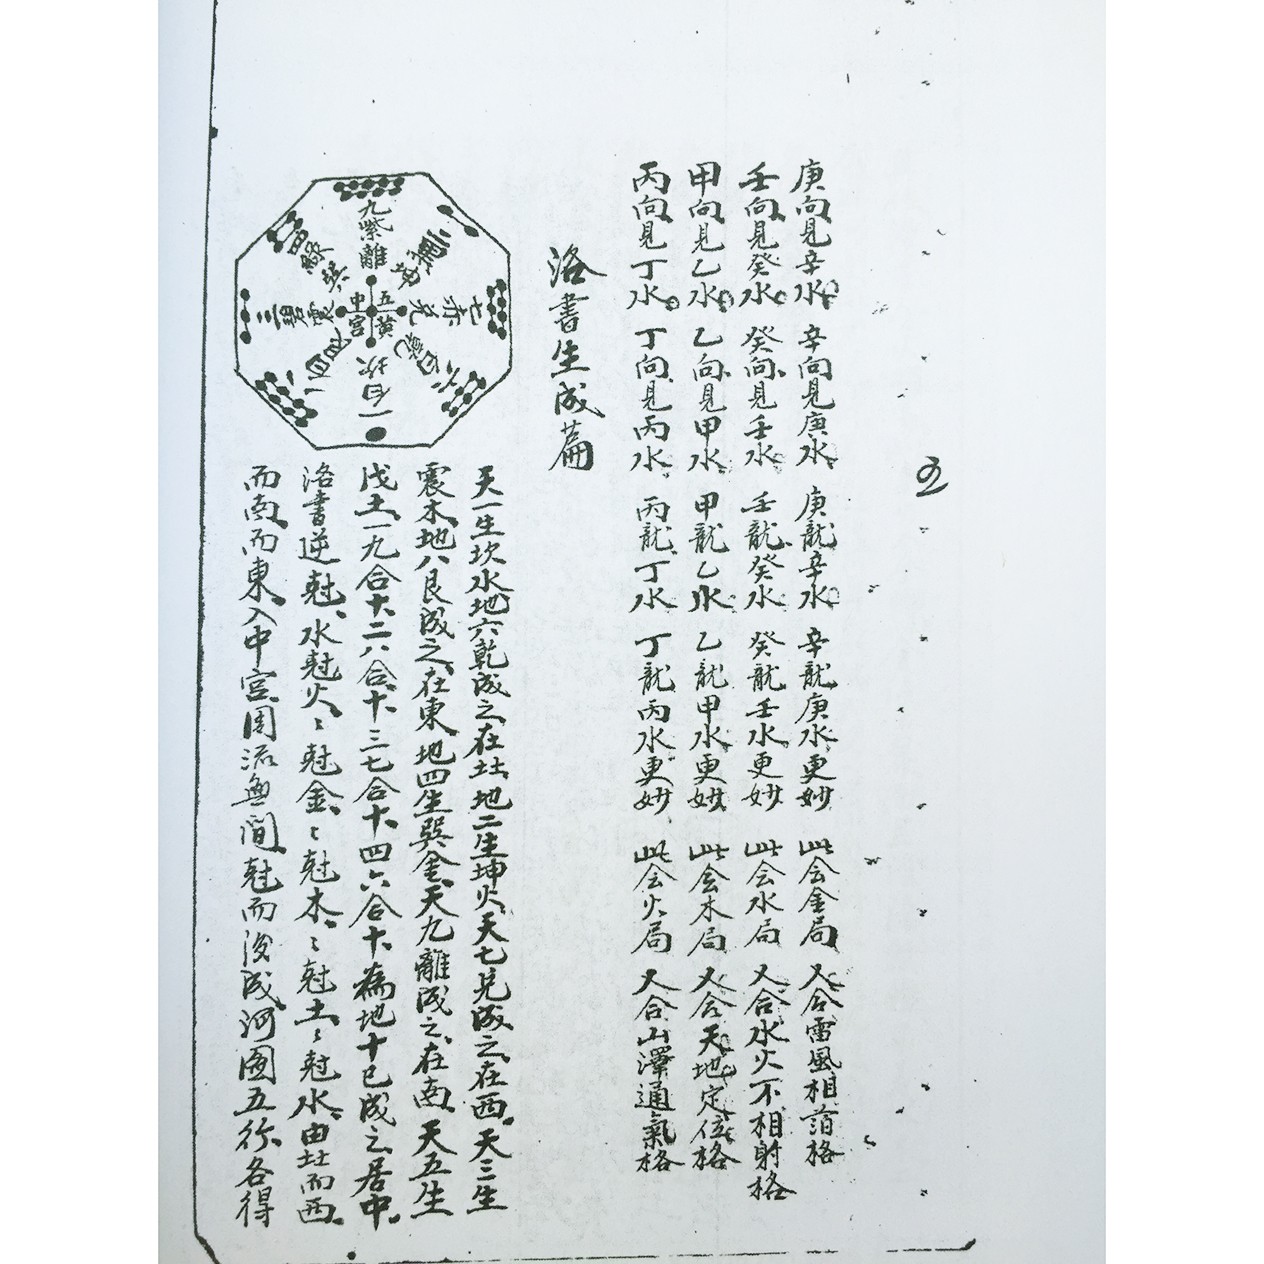 庚向見辛水 辛向見庚水 庚龍辛水 辛龍庚水更妙 此会金局 又合雷風相薄格
壬向見癸水 癸向見壬水 壬龍癸水 癸龍壬水更妙 此会水局 又合水火不相射格
甲向見乙水 乙向見甲水 甲龍乙水 乙龍甲水更妙 此会木局 又合天地定位格
丙向見丁水 丁向見丙水 丙龍丁水 丁龍丙水更妙 此会火局 又合山澤通氣格
洛書生成篇
天一生坎水地六乾成之在北地二生坤火天七兑成之在西天三生
震木地八艮成之在東地四生巽金天九離成之在南天五生
戊土一九合十二八合十三七合十四六合十為地十己成之居中
洛書逆尅水尅火〻尅金〻尅木〻尅土〻尅水由北而西
而南而東入中宮周流無間尅而後成河圖五行各得
九紫離
二黑坤
七赤兑
六白乾
一白坎
八白艮
三碧震
四綠巽
五黄
中宮